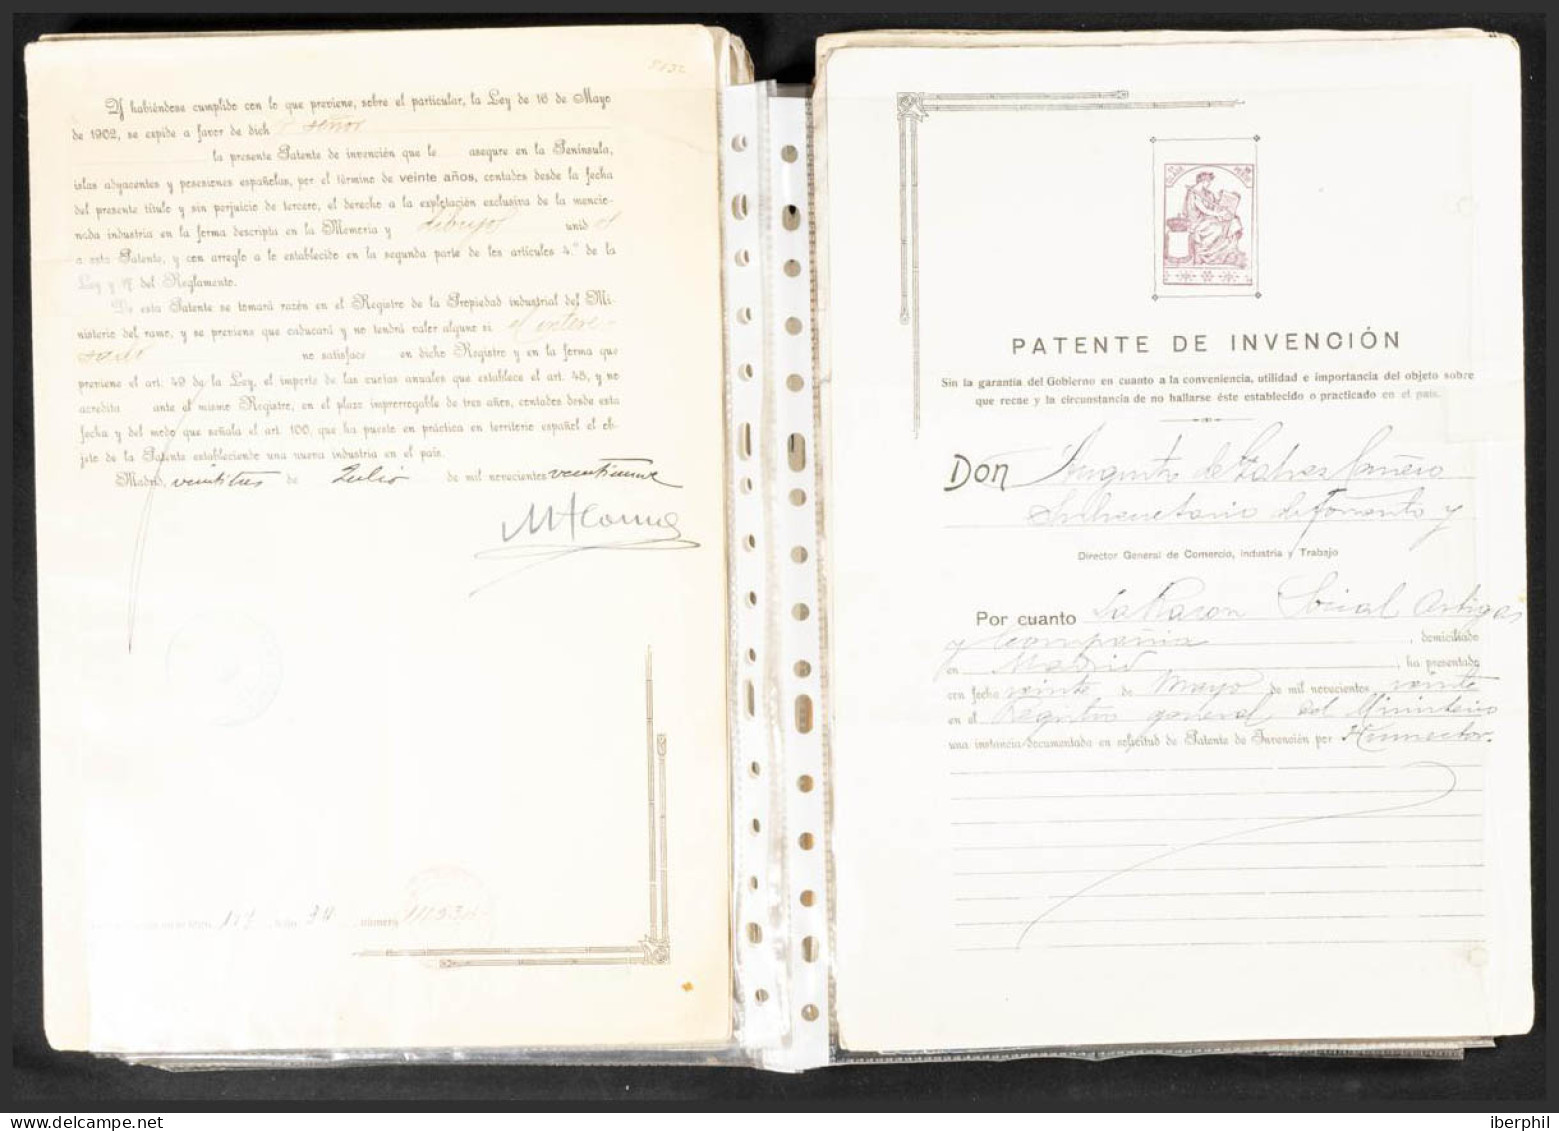 8132
Y habiéndose cumplido con lo que previene, sobre el particular, la Ley de 16 de Mayo
de 1902, se expide a favor de dich o señor
la presente Patente de invención que le asegure en la Península,
islas adyacentes y posesiones españolas, por el término de veinte años, contados desde la fecha
del presente título y sin perjuicio de tercero, el derecho a la explotación exclusiva de la mencio-
nada industria en la forma descripta en la Memoria y dibujos unid os
a esta Patente, y con arreglo a lo establecido en la segunda parte de los artículos 4.º de la
Ley y del Reglamento.
De esta Patente se tomará razón en el Registro de la Propiedad industrial del Mi-
nisterio del ramo, y se previene que caducará y no tendrá valor alguno si el intere-
sado no satisface en dicho Registro y en la forma que
previene el art. 49 de la Ley, el importe de las cuotas anuales que establece el art. 48, y no
acredita ante el mismo Registro, en el plazo improrrogable de tres años, contados desde esta
fecha y del modo que señala el art. 100, que ha puesto en práctica en territorio español el ob-
jeto de la Patente estableciendo una nueva industria en el país.
Madrid, veintitres de Julio de mil novecientos veintinueve
número
PATENTE DE INVENCIÓN
Sin la garantía del Gobierno en cuanto a la conveniencia, utilidad e importancia del objeto sobre
que recae y la circunstancia de no hallarse éste establecido o practicado en el país.
DON Augusto de Galvez Cañero
Subsecretario de Fomento y
Director General de Comercio, Industria y Trabajo
Por cuanto La Razon Social Artigas
y Compañia, domiciliado
en Madrid, ha presentado
con fecha veinte de Mayo de mil novecientos veinte
en el Registro general del Ministerio
una instancia documentada en solicitud de Patente de Invención por Humector.
iberphil